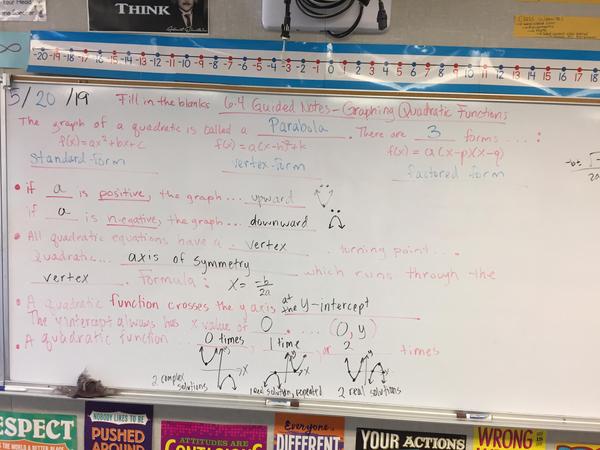 Your Head
THINK
-20 -19 -18 -17 -16 -15 -14 -13 -12 -11 -10 -9 -8 -7 -6 -5 -4 -3 -2 -1 0 1 2 3 4 5 6 7 8 9 10 11 12 13 14 15 16 17 18
5/20/19 Fill in the blanks 6.4 Guided Notes - Graphing Quadratic Functions
The graph of a quadratic is called a Parabola. There are 3 forms...:
f(x)=ax²+bx+c f(x)=a(x-h)²+k f(x)=a(x-p)(x-q)
standard form vertex-form factored form
• if a is positive, the graph... upward
if a is negative, the graph... downward
• All quadratic equations have a vertex . turning point...
Quadratic... axis of symmetry which runs through the
vertex. Formula: x = -b/2a
• A quadratic function crosses the y axis at the y-intercept
The y intercept always has x value of 0. ... (0,y)
• A quadratic function... 0 times, 1 time or 2 times
2 complex solutions 1 real solution, repeated 2 real solutions
RESPECT
NOBODY LIKES TO BE
PUSHED
AROUND
ATTITUDES ARE
CONTAGIOUS
Everyone is
DIFFERENT
YOUR ACTIONS
WRONG